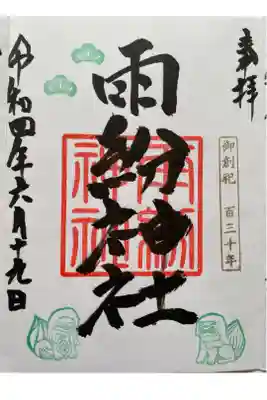 奉拝
御創祀 百三十年
雨紛神社
雨紛
神社
令和四年六月十九日